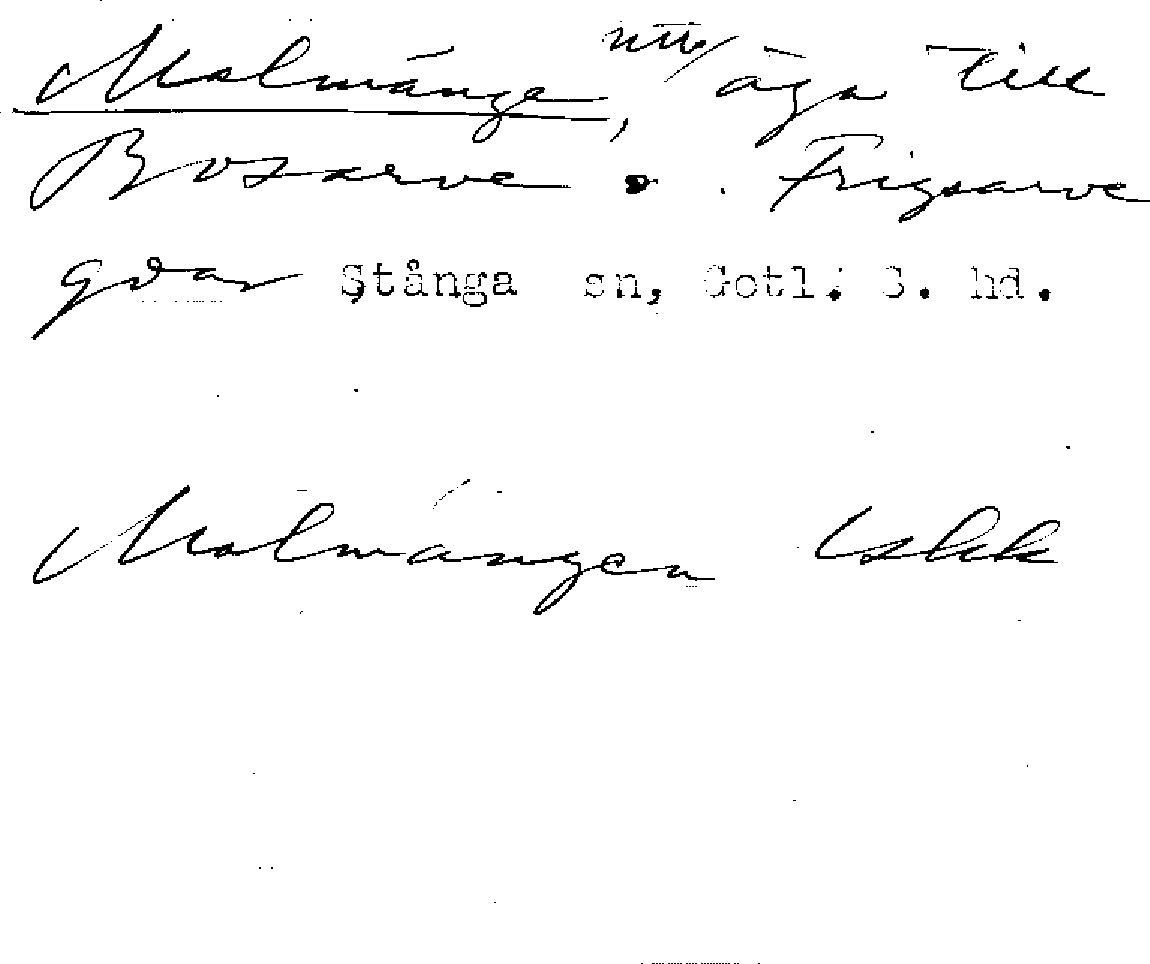 Malmänge, ntr/ äga till
Bosarve o. Frigsarve
gdar Stånga sn, Gotl. S. hd.
Malmängen Uskk